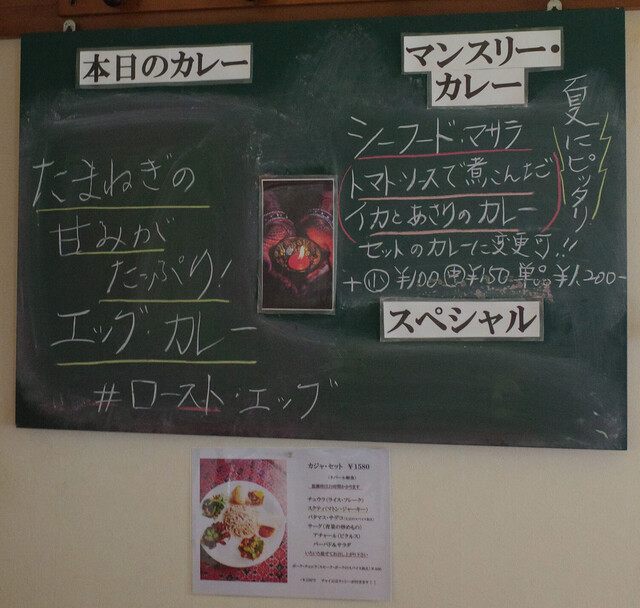 本日のカレー
たまねぎの
甘みが
たっぷり!
エッグ・カレー
#ロースト・エッグ
マンスリー・
カレー
夏にピッタリ
シーフード・マサラ
トマトソースで煮こんだ
イカとあさりのカレー
セットのカレーに変更可!!
+小¥100 中¥150 単品¥1,200-
スペシャル
カジャ・セット ¥1580
チュウラ(ライス・フレーク)
サーグ(青菜の炒めもの)
アチャール(ピクルス)
パーパル&サラダ